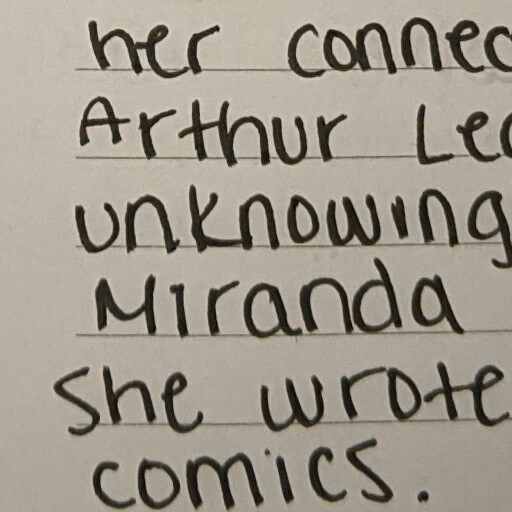 her connec
Arthur Le
unknowing
Miranda
She wrote
comics.